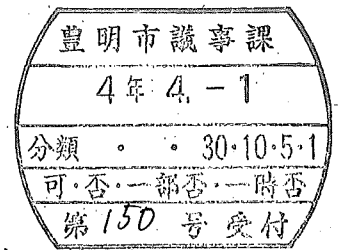 豊明市議事課
4年4.-1
分類 ・ ・ 30・10・5・1
可・否・一部否・一時否
第150号受付